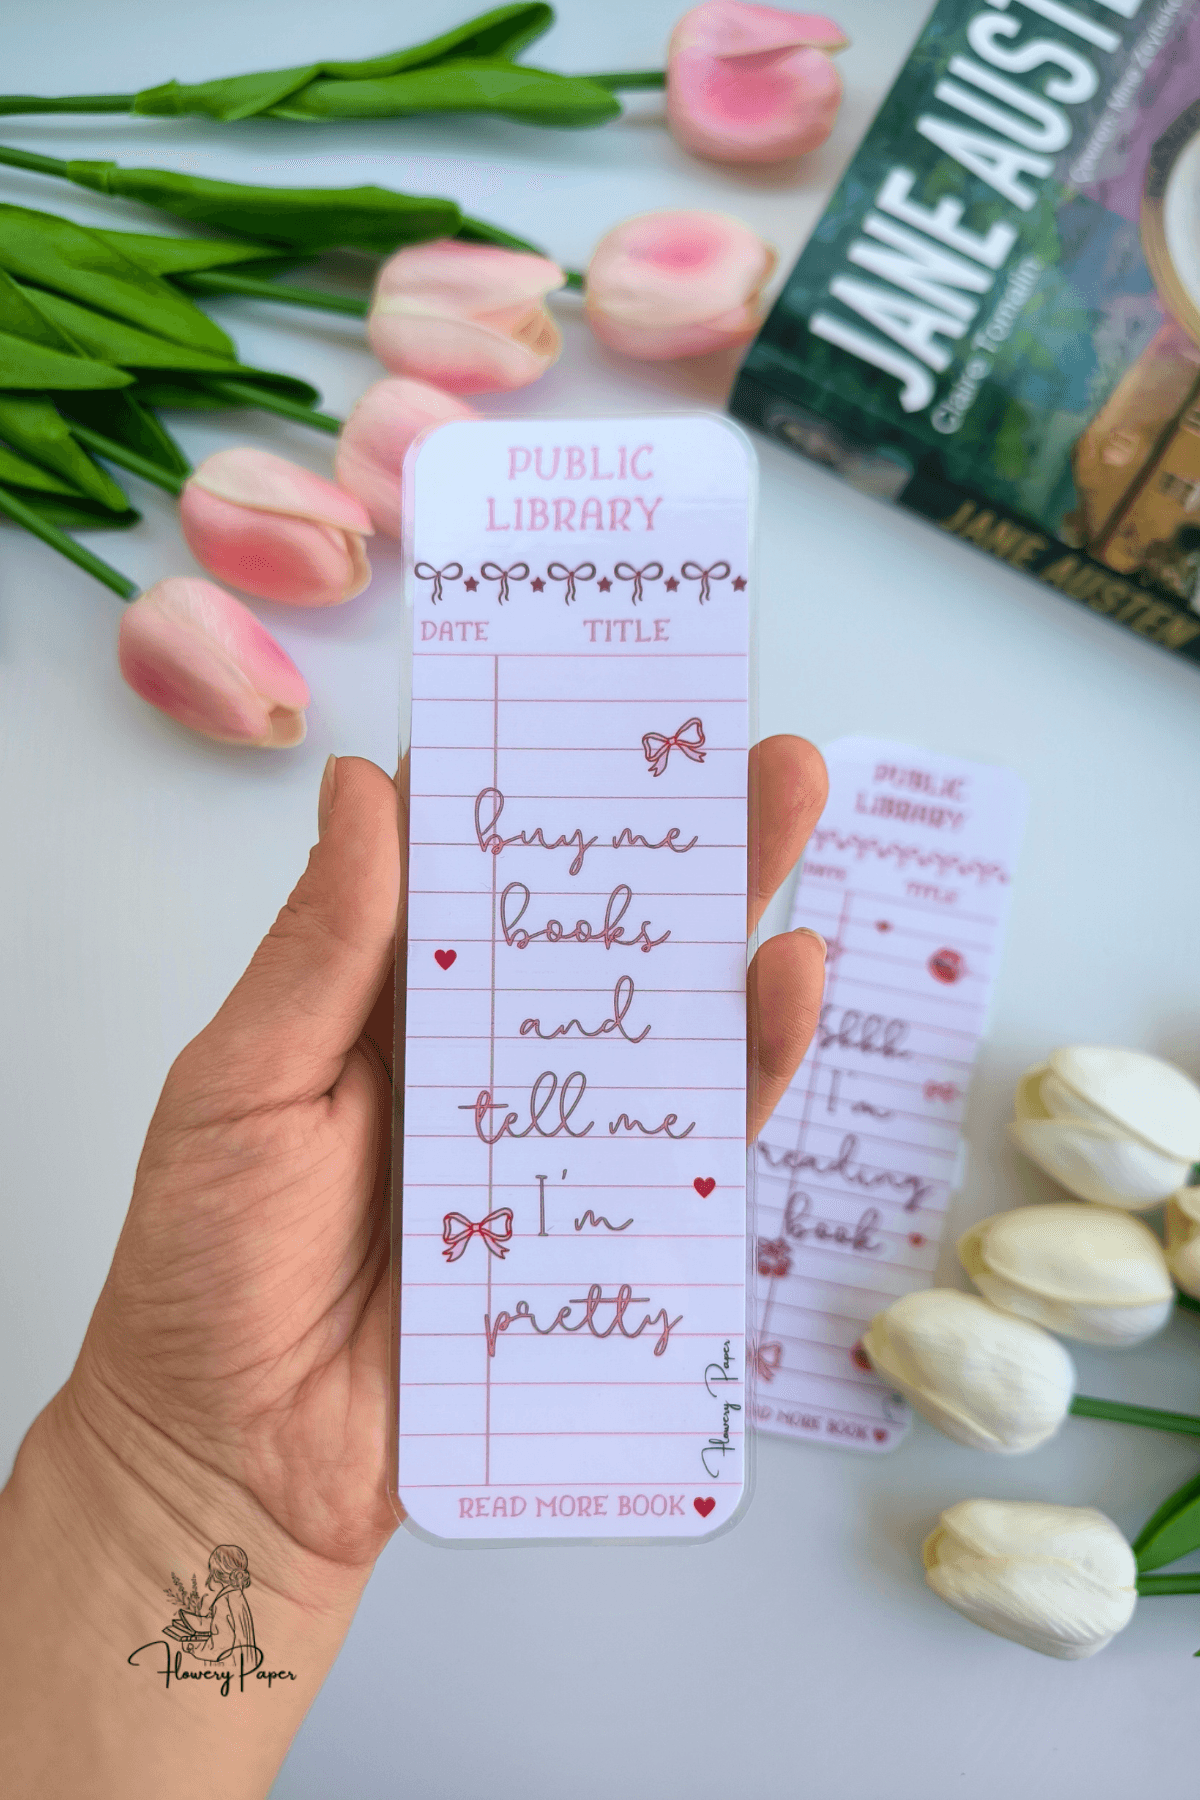 JANE AUSTE
Claire Tomalin
JANE AUSTEN
PUBLIC
LIBRARY
DATE TITLE
buy me
books
and
tell me
I'm
pretty
Flowery Paper
READ MORE BOOK
PUBLIC
LIBRARY
DATE TITLE
Shhhh
I'm
reading
book
MORE BOOK
Flowery Paper